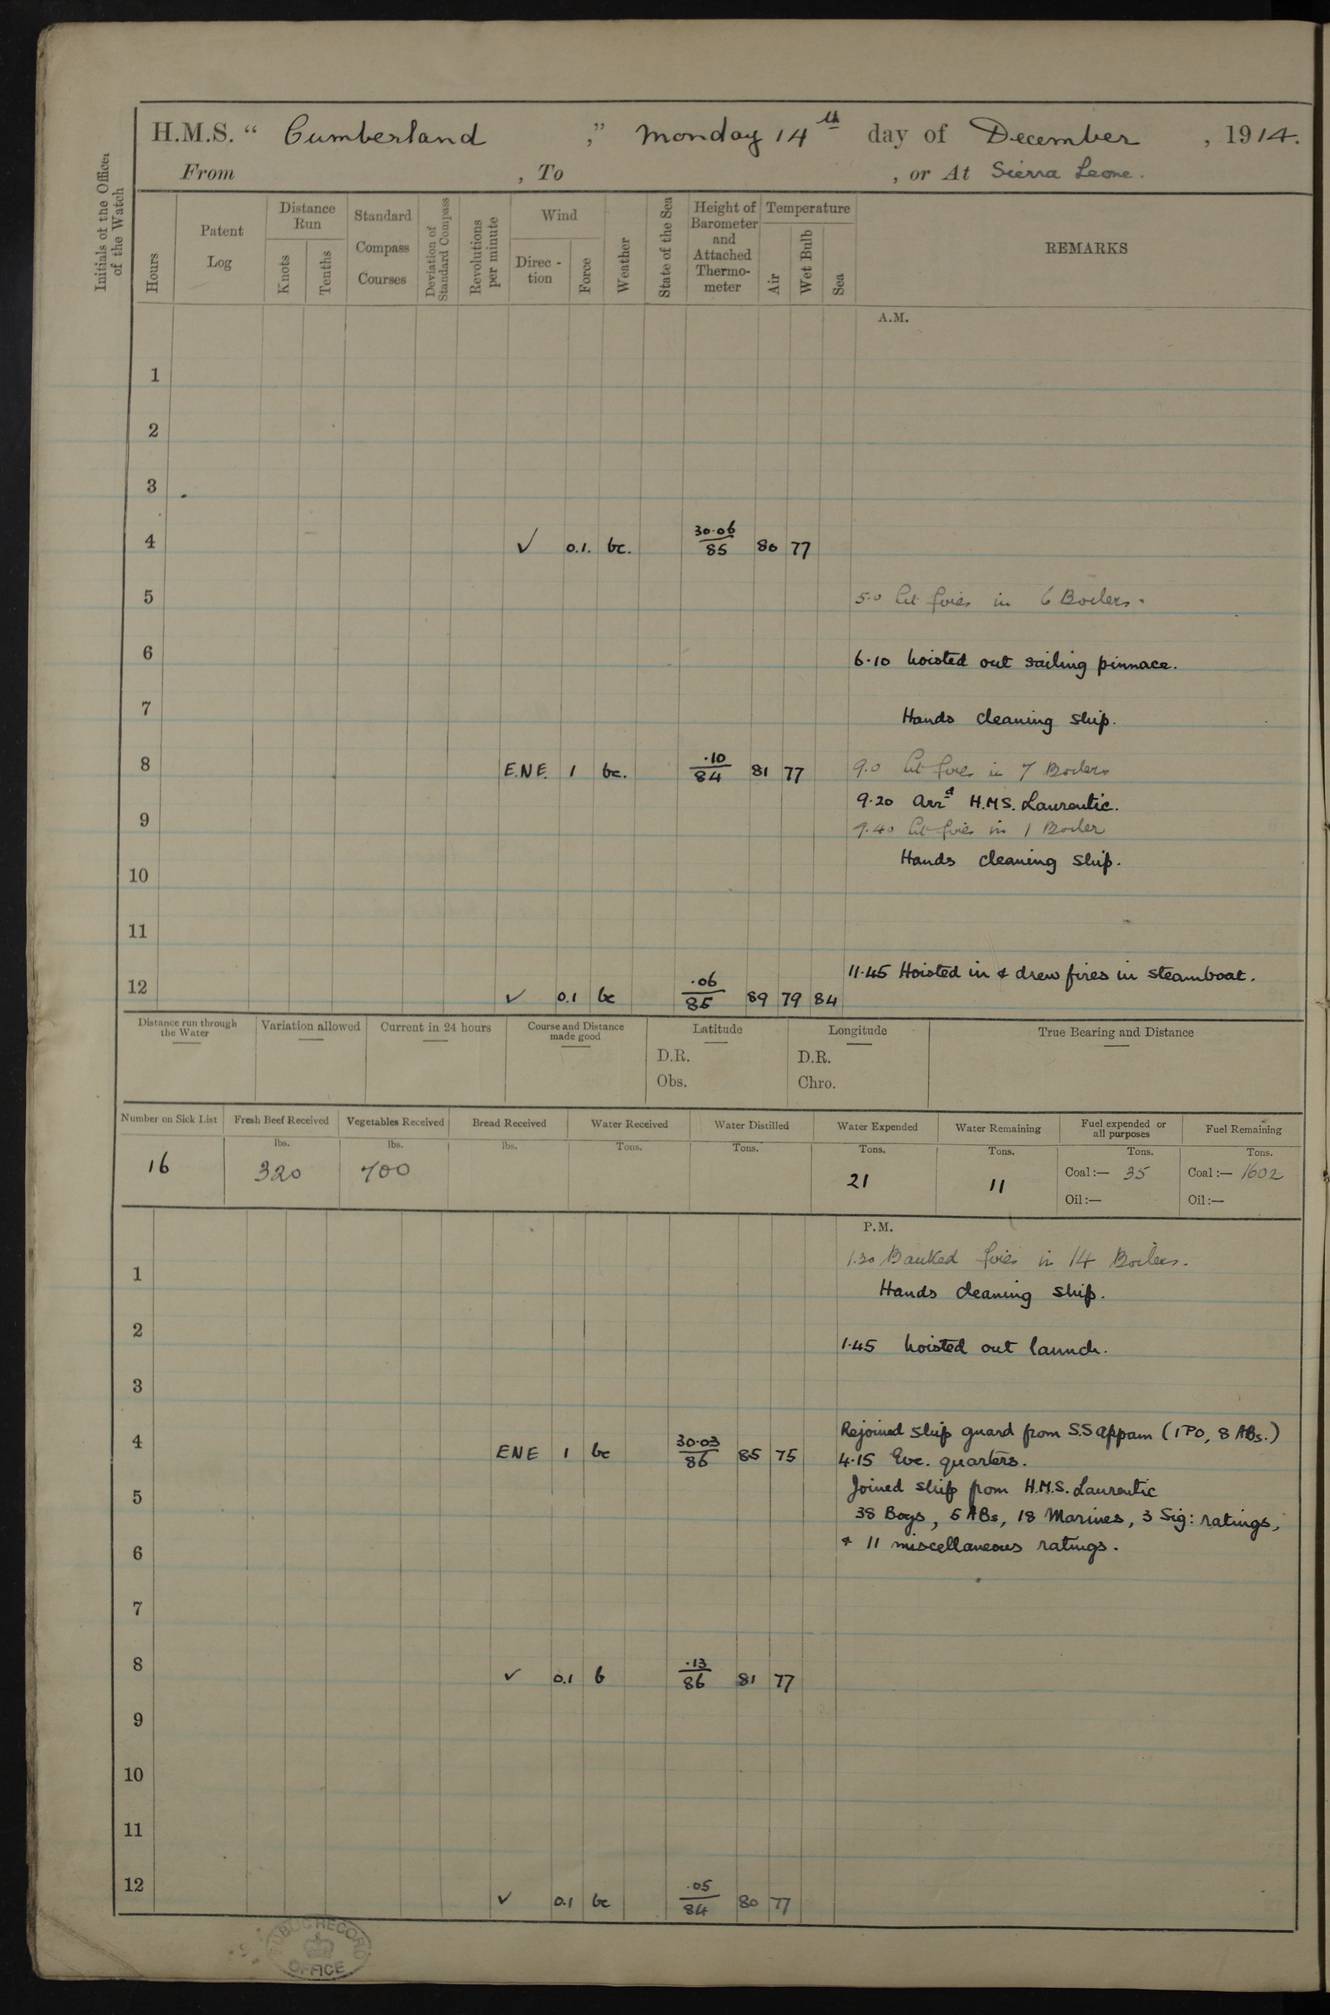 H.M.S. “ Cumberland ,” Monday 14th day of December , 1914.
From , To , or At Sierra Leone.
Initials of the Officer of the Watch
Hours
Patent Log
Distance Run
Knots
Tenths
Standard Compass Courses
Deviation of Standard Compass
Revolutions per minute
Wind
Direc-tion
Force
Weather
State of the Sea
Height of Barometer and Attached Thermo-meter
Temperature
Air
Wet Bulb
Sea
REMARKS
A.M.
1
2
3
4 ✓ 0.1. bc. 30·06/85 80 77
5 5·0 Lit fires in 6 Boilers.
6 6·10 hoisted out sailing pinnace.
7 Hands cleaning ship.
8 E.N.E. 1 bc. ·10/84 81 77 9.0 Lit fires in 7 Boilers
9·20 Arrd H.M.S. Laurentic.
9 9.40 lit fires in 1 Boiler
Hands cleaning ship.
10
11
11·45 Hoisted in & drew fires in steamboat.
12 ✓ 0.1 bc ·06/85 89 79 84
Distance run through the Water
Variation allowed
Current in 24 hours
Course and Distance made good
Latitude
D.R.
Obs.
Longitude
D.R.
Chro.
True Bearing and Distance
Number on Sick List
16
Fresh Beef Received
lbs.
320
Vegetables Received
lbs.
700
Bread Received
lbs.
Water Received
Tons.
Water Distilled
Tons.
Water Expended
Tons.
21
Water Remaining
Tons.
11
Fuel expended or all purposes
Tons.
Coal:— 35
Oil:—
Fuel Remaining
Tons.
Coal:— 1602
Oil:—
P.M.
1.30 Banked fires in 14 Boilers.
1 Hands cleaning ship.
2 1·45 hoisted out launch.
3
Rejoined ship guard from S.S Appam (1 PO, 8 ABs.)
4 ENE 1 bc 30·03/86 85 75 4·15 Eve. quarters.
Joined ship from H.M.S. Laurentic
5 38 Boys, 5 ABs, 18 Marines, 3 Sig: ratings,
6 & 11 miscellaneous ratings.
7
8 ✓ 0.1 b ·13/86 81 77
9
10
11
12 ✓ 0.1 bc ·05/84 80 77
PUBLIC RECORD OFFICE